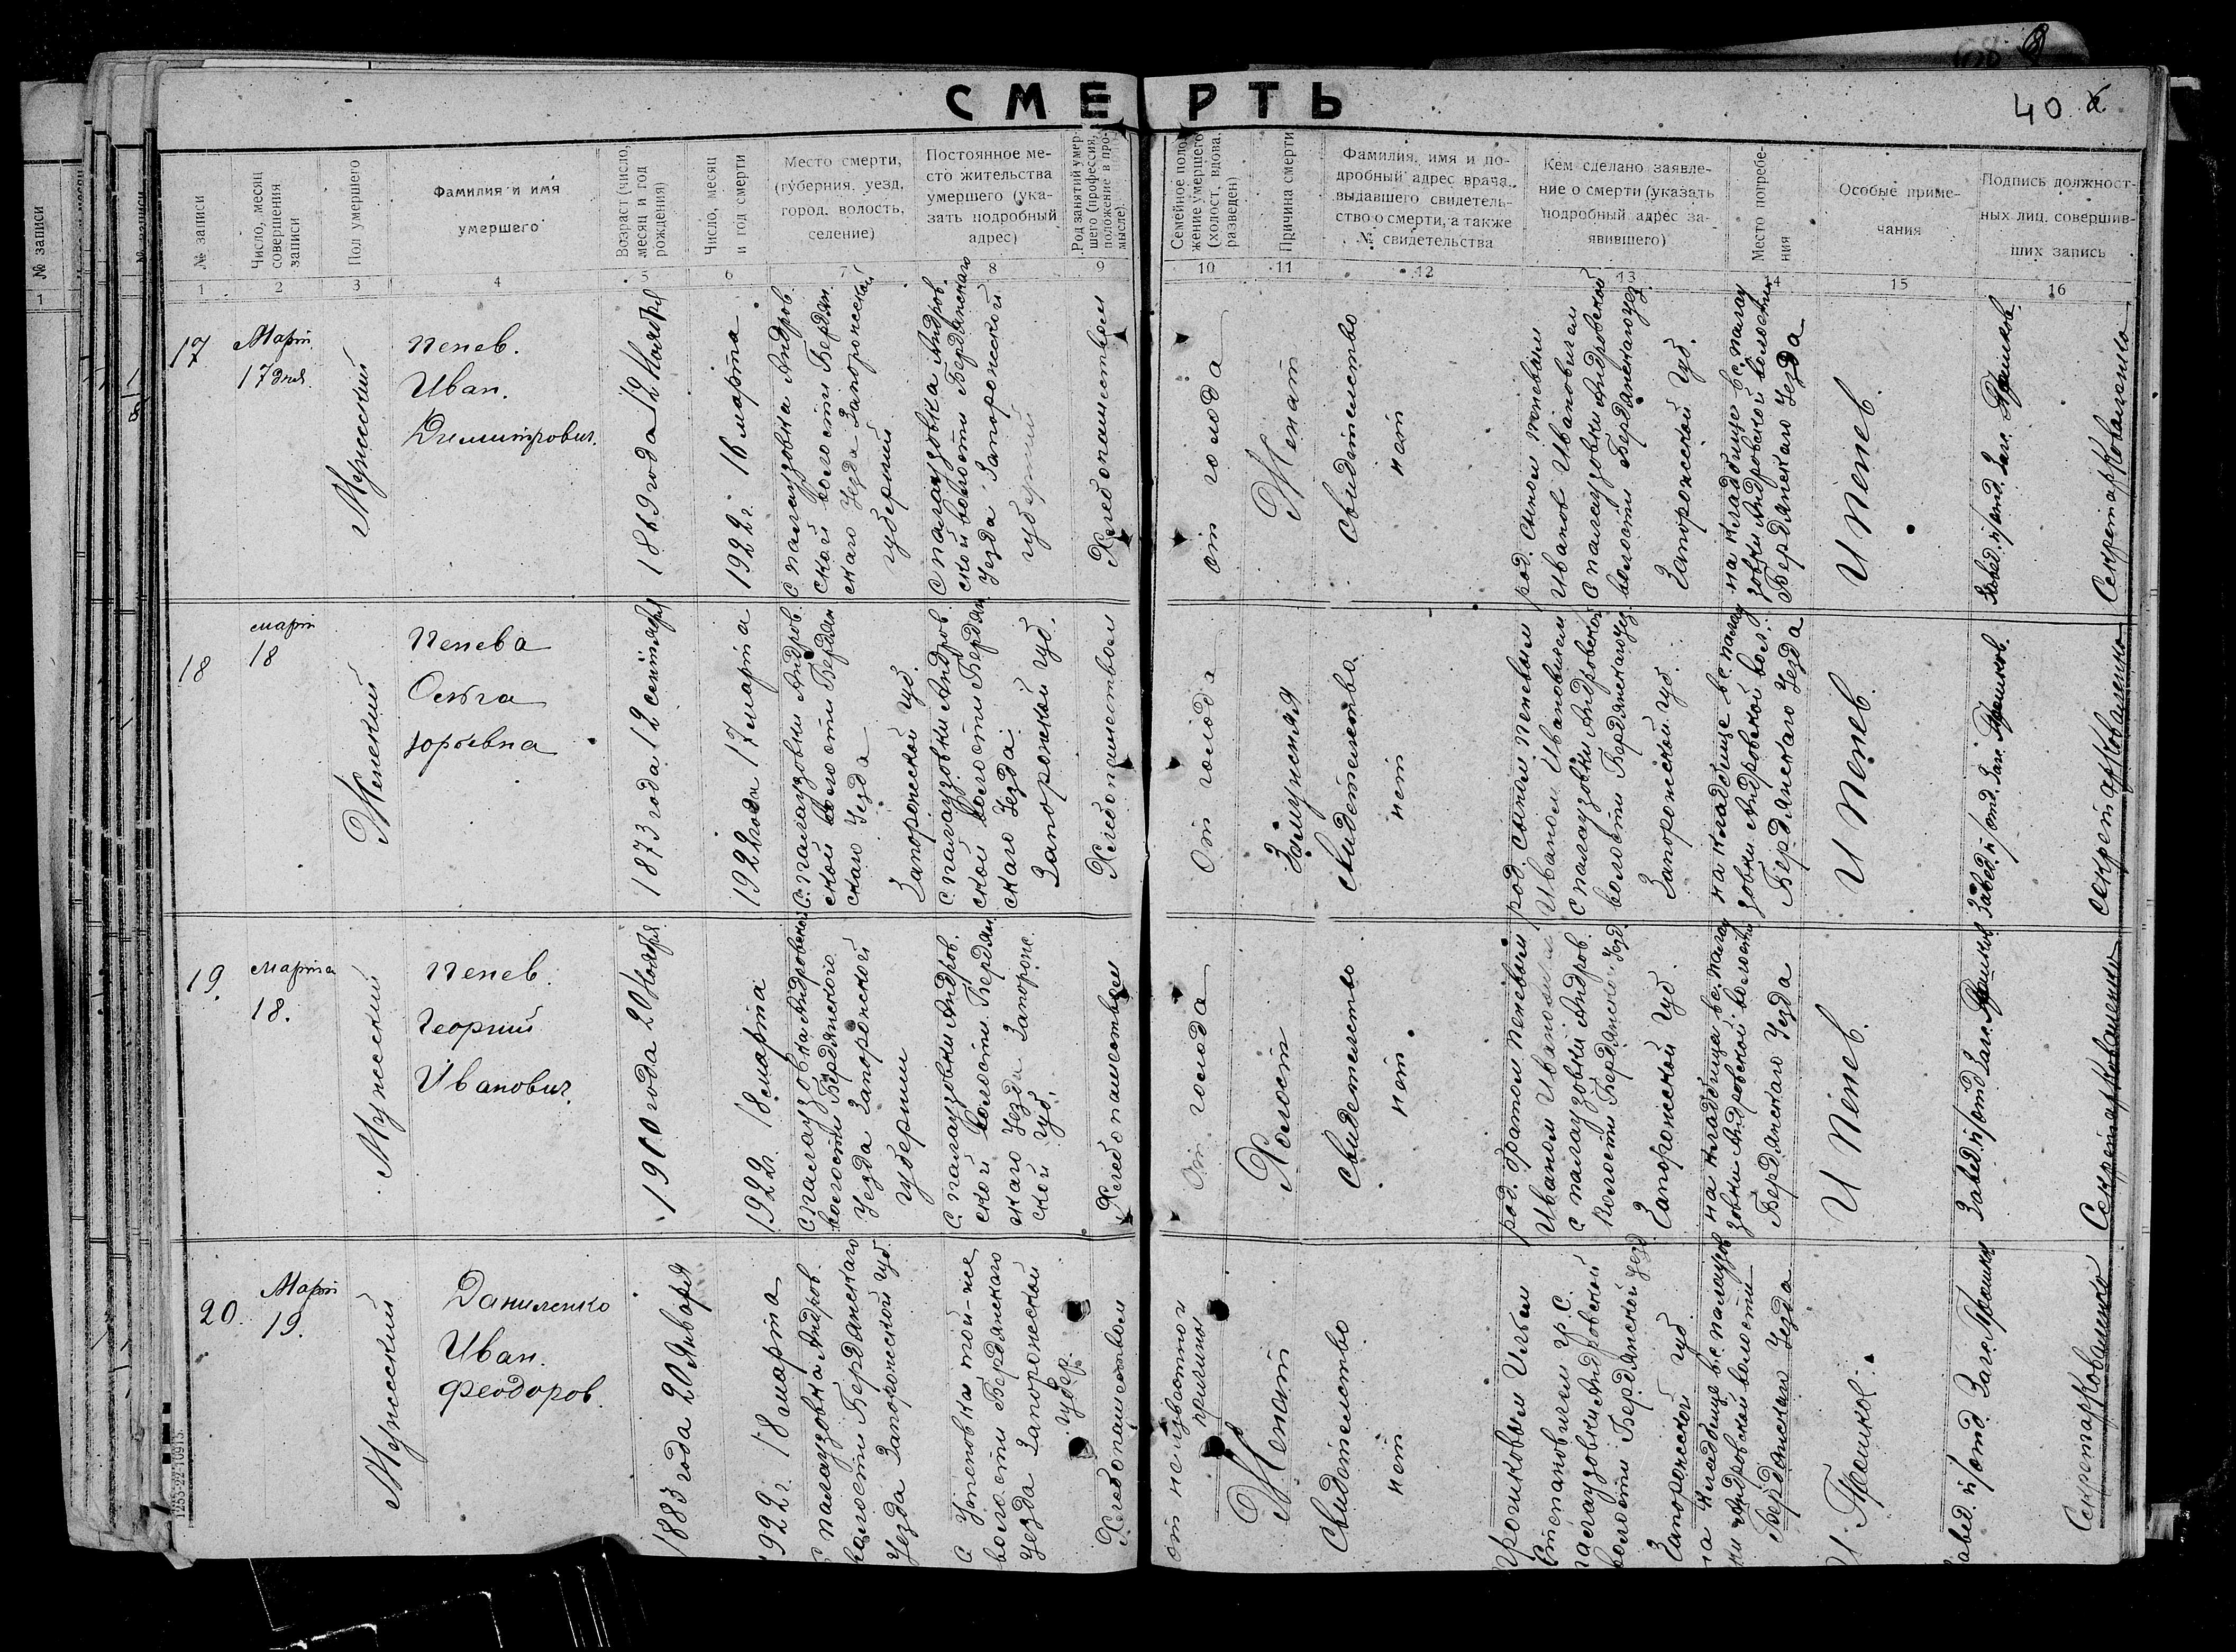 СМЕРТЬ
40
№ записи
1
№ записи
Число, месяц совершения записи
Пол умершего
Фамилия и имя умершего
Возраст (число, месяц и год рождения)
Число, месяц и год смерти
Место смерти, (губерния, уезд, город, волость, селение)
Постоянное место жительства умершего (указать подробный адрес)
Род занятий умершего (профессия, положение в промысле).
Семейное положение умершего (холост, вдова, разведен)
Причина смерти
Фамилия, имя и подробный адрес врача, выдавшего свидетельство о смерти, а также № свидетельства
Кем сделано заявление о смерти (указать подробный адрес заявившего)
Место погребения
Особые примечания
Подпись должностных лиц, совершивших запись
1 2 3 4 5 6 7 8 9 10 11 12 13 14 15 16
17
Март
17 дня.
Мужеский
Пенев.
Иван.
Димитрович.
1869 года 12 Ноября
1922 г. 16 марта
с Палаузовка Андров.
ской волости Бердян.
скаго Уезда Запорожской
губернии
с Палаузовка Андров.
ской волости Бердянскаго
Уезда Запорожской
губернии
Хлебопашеством
от голода
Женат
Свидетельство
нет
род. сыном Пеневым
Иванов Ивановичем
с Палаузовки Андровской
волости Бердянскаго уез.
Запорожской Губ.
на кладбище в с. Палау
зовки Андровской волости
Бердянскаго Уезда
И Пенев.
Завед. п/отд. Загс.
Секретарь Коваленко
18
март
18
Женский
Пенева
Ольга
Юрьевна
1873 года 12 сентября
1922 года 17 марта
с. Палаузовки Андров.
ской волости Бердян
скаго Уезда
Запорожской Губ.
с Палаузовки Андров.
ской волости Бердян
скаго Уезда.
Запорожской Губ.
Хлебопашеством
От голода
Замужняя
свидетельства
нет
род. сыном Пеневым
Иваном Ивановичем
с Палаузовки Андровской
волости Бердянскаго уез.
Запорожской Губ.
на кладбище в с. Палау
зовки Андровской вол.
Бердянскаго Уезда
И Пенев.
Завед. п/отд. Загс.
секретарь Коваленко
19.
марта
18.
Мужеский
Пенев.
Георгий
Иванович.
1900 года 20 Ноября
1922 г. 18 марта
с Палаузовка Андровской
волости Бердянского
Уезда Запорожской
губернии
с. Палаузовки Андров.
ской волости Бердян.
скаго Уезда Запорож.
ской Губ.
Хлебопашеством
От голода
Холост
Свидетельство
нет
род. братом Пеневым
Иваном Ивановичем
с Палаузовки Андров.
волости Бердянской Уезд
Запорожской Губ.
на кладбище в с. Палау
зовки Андровской волости
Бердянскаго Уезда
И Пенев.
Завед. п/отд Загс.
Секретарь Коваленко
20.
Март
19.
Мужеский
Даниленко
Иван.
Феодоров.
1883 года 20 Января
1922 г. 18 марта
с Палаузовка Андров.
волости Бердянскаго
Уезда Запорожской Губ.
с. той-же
волости Бердянскаго
Уезда Запорожской
Губер.
Хлебопашеством
от неизвестной
причины
Женат
Свидетельство
нет
Ильем
Степановичем гр. с.
Палаузовки Андровской
волости Бердянской Уезд
Запорожской Губ.
на кладбище в с. Палаузов
ки Андровской волости
Бердянскаго Уезда
Завед. п/отд. Загс.
Секретарь Коваленко
1253-22-10913.